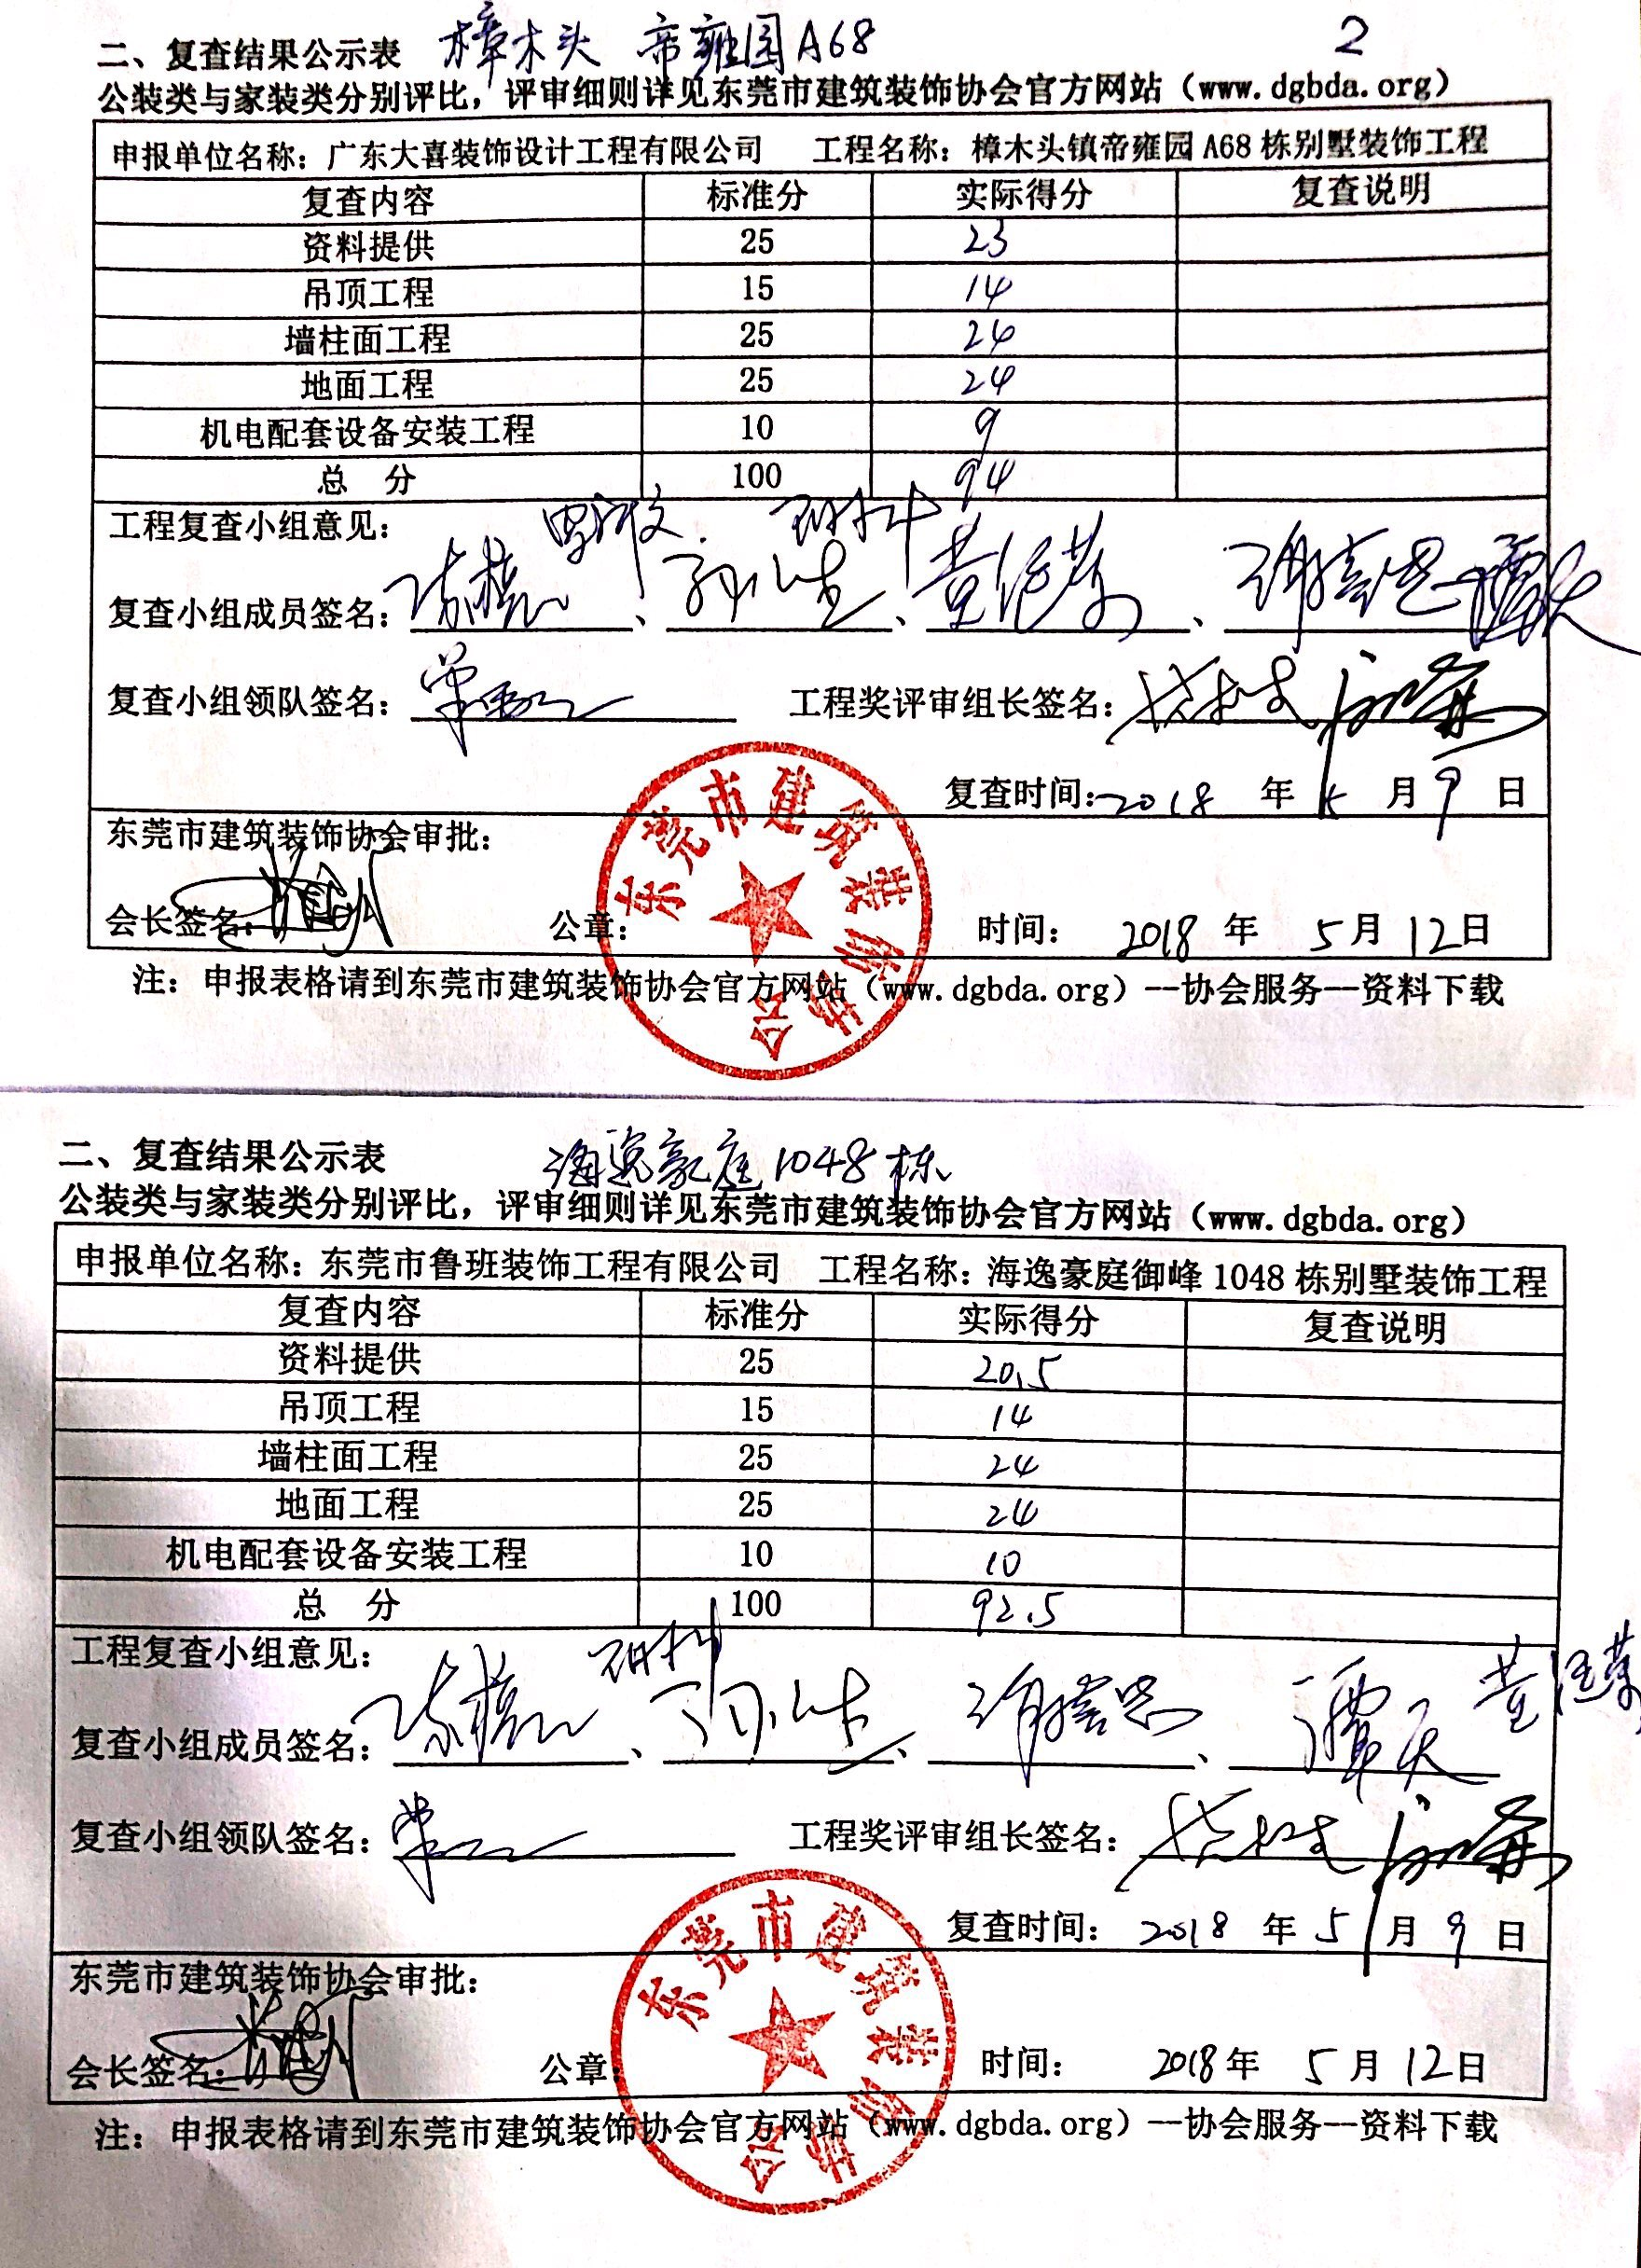 二、复查结果公示表 樟木头 帝雍园A68 2
公装类与家装类分别评比，评审细则详见东莞市建筑装饰协会官方网站（www.dgbda.org）
申报单位名称：广东大喜装饰设计工程有限公司 工程名称：樟木头镇帝雍园A68栋别墅装饰工程
复查内容 标准分 实际得分 复查说明
资料提供 25 23
吊顶工程 15 14
墙柱面工程 25 24
地面工程 25 24
机电配套设备安装工程 10 9
总 分 100 94
工程复查小组意见：
复查小组成员签名： 、 、 、
复查小组领队签名： 工程奖评审组长签名：
复查时间：2018 年 5 月 9 日
东莞市建筑装饰协会审批：
会长签名： 公章： 时间： 2018 年 5 月 12 日
东莞市建筑装饰协会
注：申报表格请到东莞市建筑装饰协会官方网站（www.dgbda.org）--协会服务--资料下载
二、复查结果公示表 海逸豪庭1048栋
公装类与家装类分别评比，评审细则详见东莞市建筑装饰协会官方网站（www.dgbda.org）
申报单位名称：东莞市鲁班装饰工程有限公司 工程名称：海逸豪庭御峰1048栋别墅装饰工程
复查内容 标准分 实际得分 复查说明
资料提供 25 20.5
吊顶工程 15 14
墙柱面工程 25 24
地面工程 25 24
机电配套设备安装工程 10 10
总 分 100 92.5
工程复查小组意见：
复查小组成员签名： 、 、 、
复查小组领队签名： 工程奖评审组长签名：
复查时间： 2018 年 5 月 9 日
东莞市建筑装饰协会审批：
会长签名： 公章： 时间： 2018年 5 月 12日
东莞市建筑装饰协会
注：申报表格请到东莞市建筑装饰协会官方网站（www.dgbda.org）--协会服务--资料下载